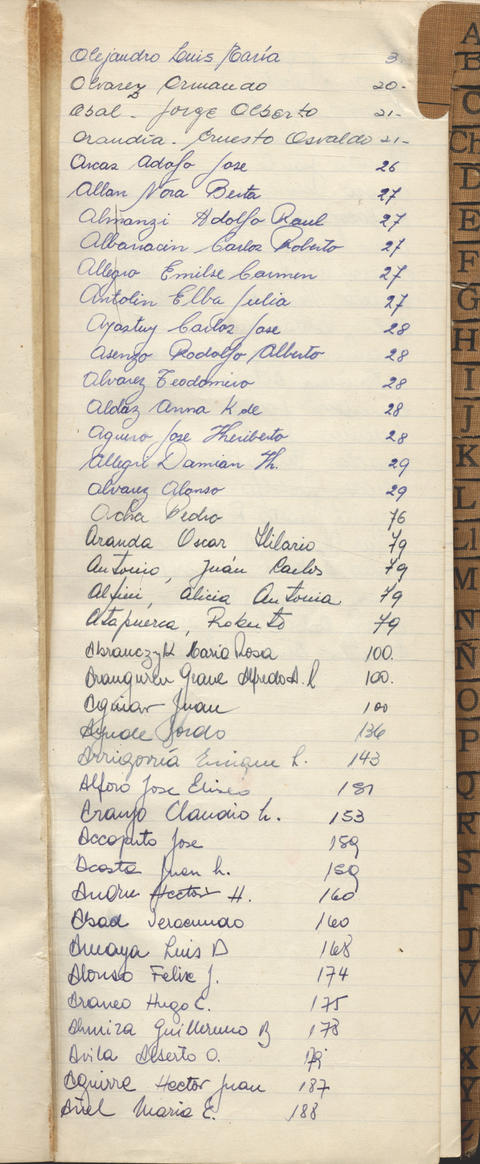 Alejandro Luis María 3
Alvarez Armando 20-
Abal - Jorge Alberto 21-
Arandia - Ernesto Osvaldo 21-
Arcas Adolfo Jose 26
Allan Nora Berta 27
Almanzi Adolfo Raul 27
Albarracin Carlos Roberto 27
Allegro Emilse Carmen 27
Antolin Elba Julia 27
Ayastuy Carlos Jose 28
Asenzo Rodolfo Alberto 28
Alvarez Teodomiro 28
Aldaz Anna K de 28
Aguero Jose Heriberto 28
Allegri Damian Th. 29
Alvarez Alonso 29
Acha Pedro 76
Aranda Oscar Hilario 79
Antonio, Juán Carlos 79
Alfini, Alicia Antonia 79
Atapuerca, Roberto 79
Abranczyk Maria Rosa 100.
Aranguren Grave Alfredo A. R 100.
Aguiar Juan 100
Ayude 136
Arrigorría Enrique L. 143
Alfaro Jose Eliseo 151
Aranjo Claudio L. 153
Accoputo Jose 159
Acosta Juan L. 159
Andre Hector H. 160
Abad Veracundo 160
Amaya Luis D 168
Alonso Felix J. 174
Araneo Hugo C. 175
Almiza Guillermo B 178
Avila Alberto O. 179
Aguirre Hector Juan 187
Añel Maria E. 188
A
B
C
Ch
D
E
F
G
H
I
J
K
L
Ll
M
N
Ñ
O
P
Q
R
S
T
U
V
W
X
Y
Z